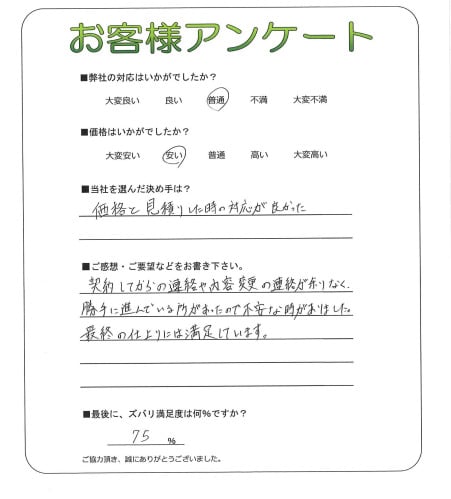 お客様アンケート
■弊社の対応はいかがでしたか？
大変良い 良い 普通 不満 大変不満
■価格はいかがでしたか？
大変安い 安い 普通 高い 大変高い
■当社を選んだ決め手は？
価格と見積りした時の対応が良かった
■ご感想・ご要望などをお書き下さい。
契約してからの連絡や内容変更の連絡が余りなく、
勝手に進んでいる所があったので不安な時がありました。
最終の仕上りには満足しています。
■最後に、ズバリ満足度は何%ですか？
75 %
ご協力頂き、誠にありがとうございました。